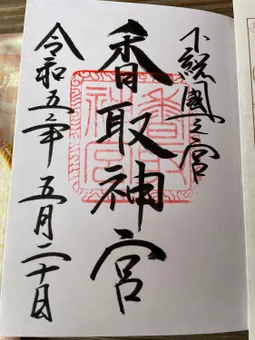 下総國一之宮
香取神宮
令和五年五月二十日
香取
神宮